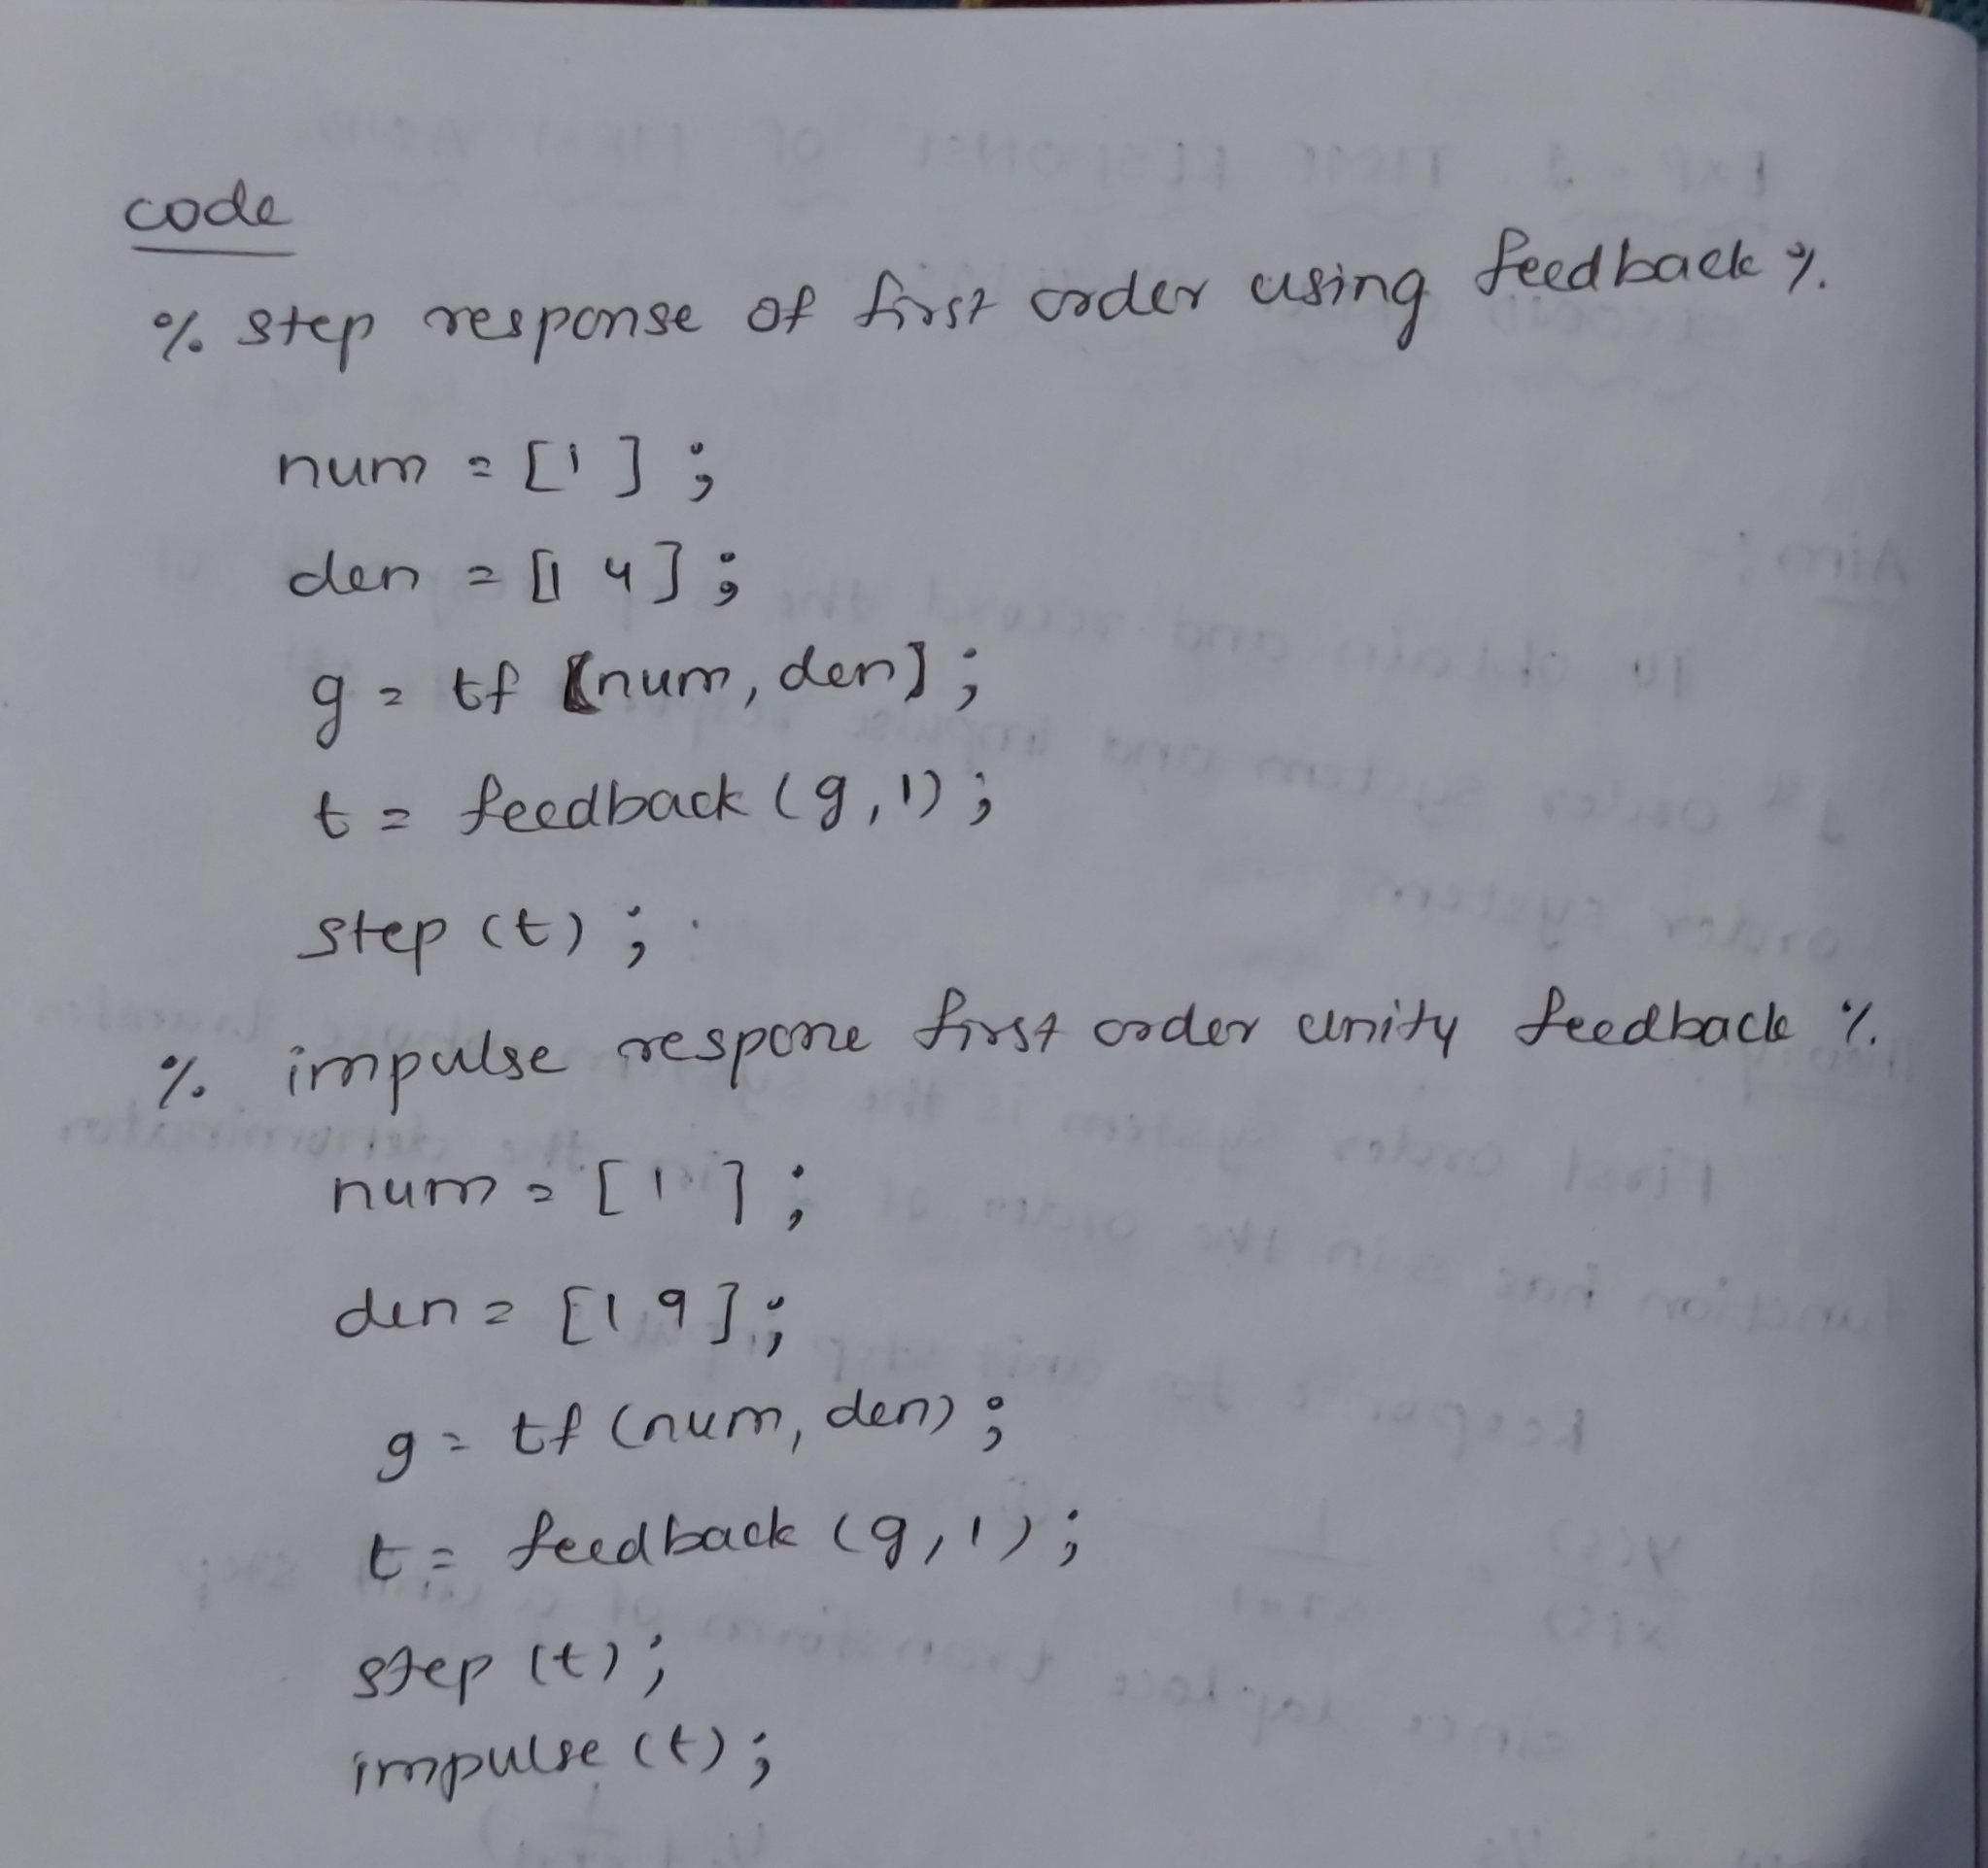 code
% step response of first order using feedback %
num = [1];
den = [1 4];
g = tf [num, den];
t = feedback (g, 1);
step (t);
% impulse respone first order unity feedback %
num = [1];
den = [1 9];
g = tf (num, den);
t = feedback (g, 1);
step (t);
impulse (t);